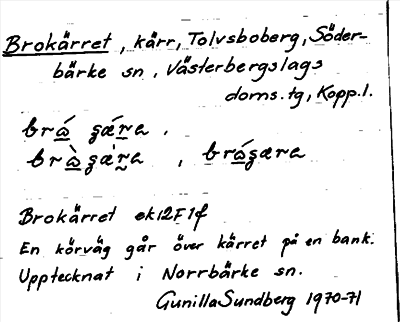 Brokärret, kärr, Tolvsboberg, Söder-
bärke sn, Västerbergslags
doms. tg, Kopp. l.
Brokärret ek12F1f
En körväg går över kärret på en bank.
Upptecknat i Norrbärke sn.
Gunilla Sundberg 1970-71